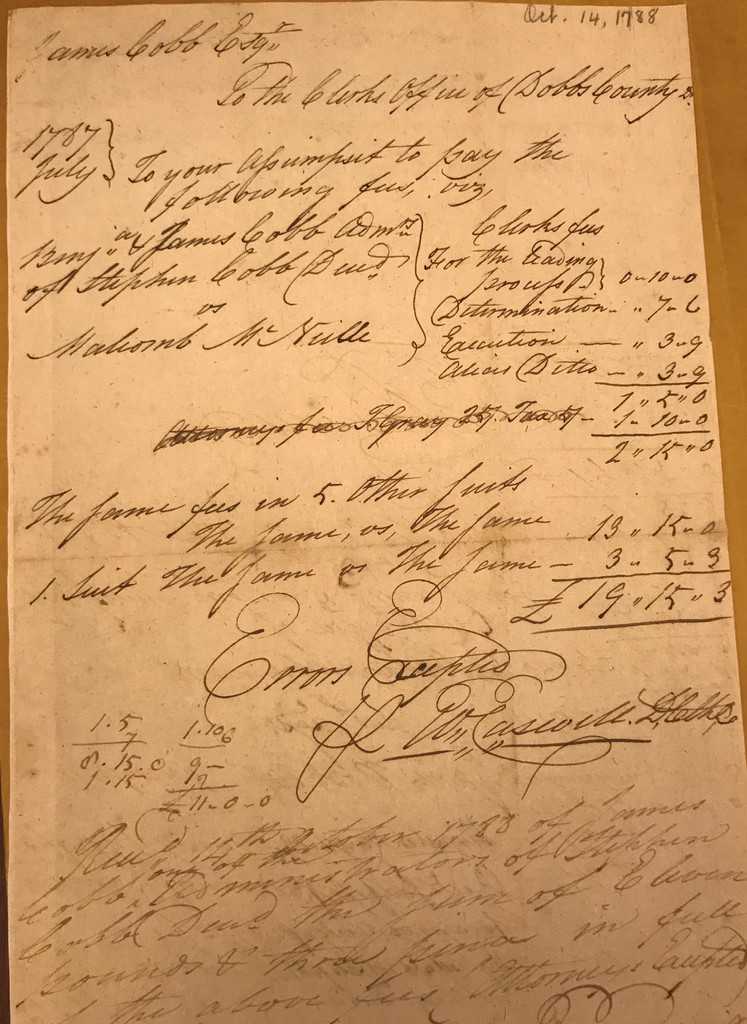 Oct. 14, 1788
James Cobb Esqr
To the Clerks Office of Dobbs County Dr
1787
July } To your Assumpsit to pay the
following fees, viz,
Benjn & James Cobb Admrs
of Stephen Cobb Decd
vs
Malcomb McNeille
Clerks fees
For the leading
process } 0 „ 10 „ 0
Determination „ 7 „ 6
Execution — „ 3 „ 9
Alias Ditto — „ 3 „ 9
1 „ 5 „ 0
Attorneys fee 25/. Tax 5/ — 1 „ 10 „ 0
2 „ 15 „ 0
The same fees in 5. Other suits
The same, vs, The same 13 „ 15 „ 0
1. Suit The same vs The same — 3 „ 5 „ 3
£ 19 „ 15 „ 3
Errors Excepted
W„ Caswell.
1.5
7
8.15.0
1.15
1.10
6
9 —
£ 11 „ 0 „ 0
Recd 14th October 1788 of James
Cobb, one of the Administrators of Stephen
Cobb Decd the sum of Eleven
pounds & three pence in full
of the above fees Attorneys Excepted